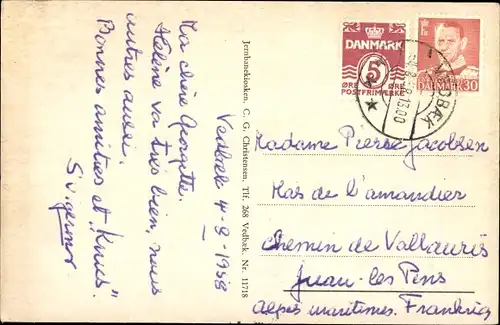 Vedbæk 4-8-1958
Ma chère Georgette.
Hélène va très bien, nous
autres aussi.
Bonnes amitiés et "Knus".
Jernbanekiosken, C. G. Christensen, Tlf. 268 Vedbæk. Nr. 11718
DANMARK
5
ØRE ØRE
POSTFRIMÆRKE
DANMARK 30
VEDBÆK
13.00
Madame Pierre Jacobsen
Mas de l'amandier
Chemin de Vallauris
Juan-les Pins
Alpes maritimes. Frankrig